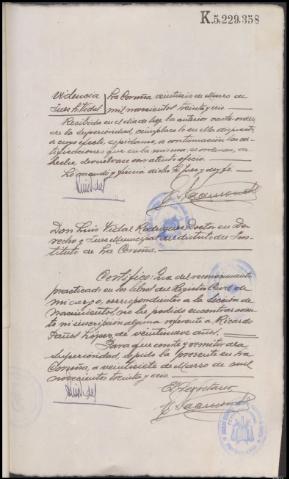 K.5.229.358
Providencia La Coruña veintiseis de Marzo de
Juez Sr Vidal mil novecientos treinta y uno.
Recibida en el día de hoy la anterior carta orden
de la Superioridad, cumplase lo en ella dispuesto,
a cuyo efecto, expídanse, a continuación las
certificaciones que en la misma se interesan, y
hecho, devuelvase con atento oficio.
Lo mandó y firma dicho Sr Juez, doy fe.
Don Luis Vidal Rodriguez Doctor en De-
recho y Juez Municipal del distrito del Ins-
tituto de La Coruña.
Certifico: Que del reconocimiento
practicado en los libros del Registro Civil de
mi cargo, correspondientes a la Sección de
Nacimientos no ha podido encontrarse
inscripcion alguna referente a Ricardo
López de veintiun años.
Para que conste y remitir a la
Superioridad, expido la presente en La
Coruña, a veintisiete de Marzo de mil
novecientos treinta y uno.
El Secretario